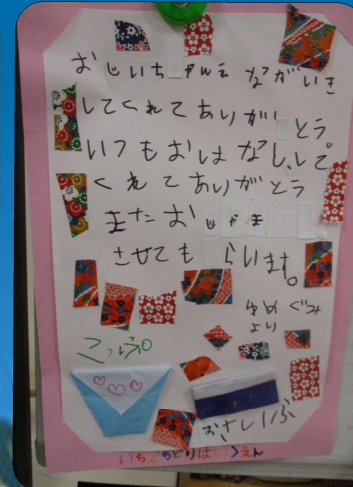 おじいちゃん ながいき
してくれてありがとう
いつもおはなしして
くれてありがとう
またおじゃま
させてもらいます。
ゆめぐみ
より
こっぷ
おさいふ